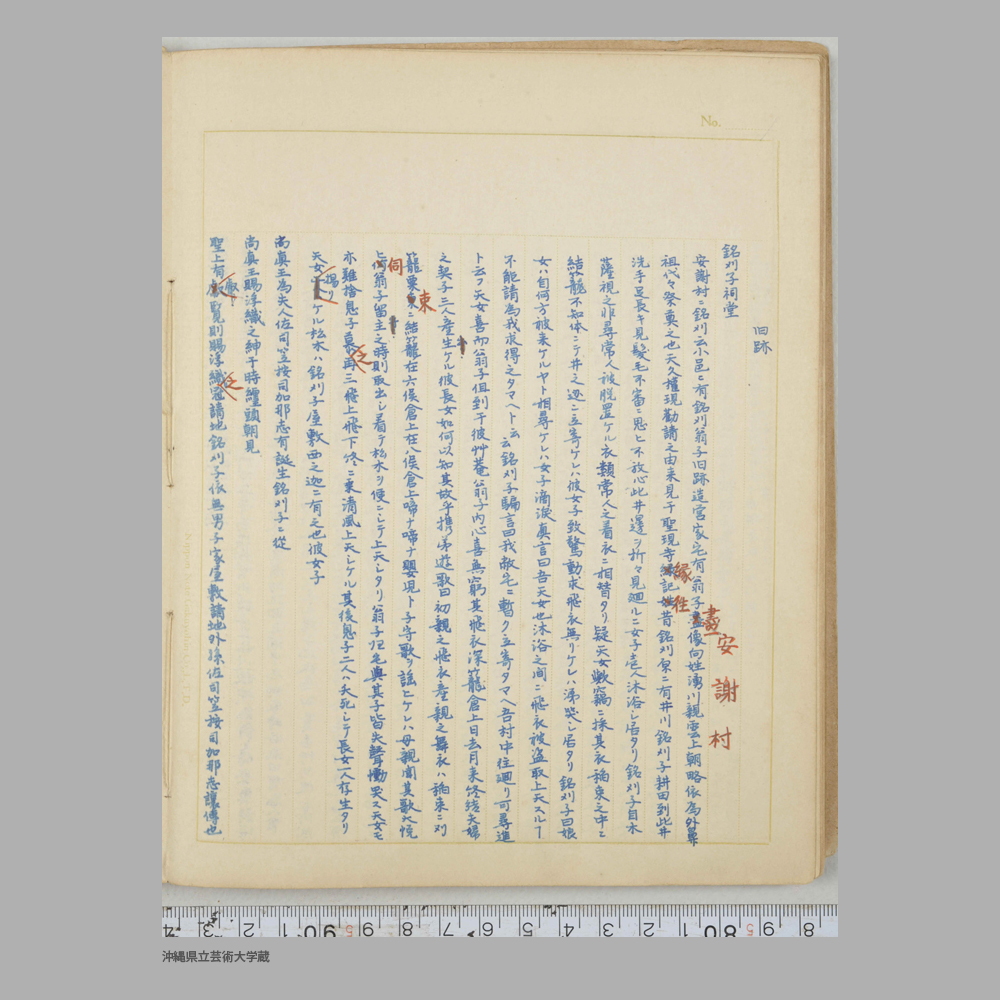 No.
旧跡
銘刈子祠堂
安謝村
安謝村ニ銘刈云小邑ニ有銘刈翁子旧跡造営家宅有翁子畫像向姓湧川親雲上朝略依為外
畫
祖代々祭奠之也天久權現勧請之由来見于聖現寺記昔銘刈原ニ有井川銘刈子耕田到此井
縁
往
洗手足長キ見髪毛不審ニ思ヒ不放心此井邊ヲ折々見廻ルニ女子壱人沐浴シ居タリ銘刈子自木
蔭視之非尋常人被脱置ケル衣類常人之着衣ニ相替タリ疑天女欺竊ニ採其衣稲束之中ニ
結籠不知体ニテ井之辺ニ立寄ケレハ彼女子致驚動求飛衣無リケレハ涕哭シ居タリ銘刈子曰娘
女ハ自何方被来ケルヤト相尋ケレハ女子滴涙真言曰吾天女也沐浴之間ニ飛衣被盗取上天スルヿ
不能請為我求得之タマヘト云云銘刈子騙言曰我敝宅ニ暫ク立寄タマヘ吾村中往廻リ可尋進
ト云フ天女喜而翁子俱到于彼艸菴翁子内心喜無窮其飛衣深籠倉上日去月来終結夫婦
之契子三人産生ケル彼長女如何以知其故乎携弟遊歌曰初親之飛衣産親之舞衣ハ稲束ニ刈
籠粟束ニ結籠在六俣倉上在八俣倉上啼ナ啼ナ嬰児ト子守歌ヲ謡ヒケレハ母親聞其歌大悦
束
ヒ伺翁子留主之時則取出シ着テ松木ヲ便ニシテ上天シタリ翁子抂宅與其子皆失聲慟哭ス天女モ
伺
亦難捨息子再三飛上飛下終ニ乗清風上天シケル其後息子二人ハ夭死シテ長女一人存生タリ
天女ケル松木ハ銘刈子屋敷西之迦ニ有之也彼女子
揚リ
尚真王為夫人佐司笠按司加那志有誕生銘刈子ニ従
尚真王賜浮織之紳于時纏頭朝見
聖上有叡覧則賜浮織冠請地銘刈子依無男子家屋敷請地外孫佐司笠按司加那志讓傳也
沖縄県立芸術大学蔵